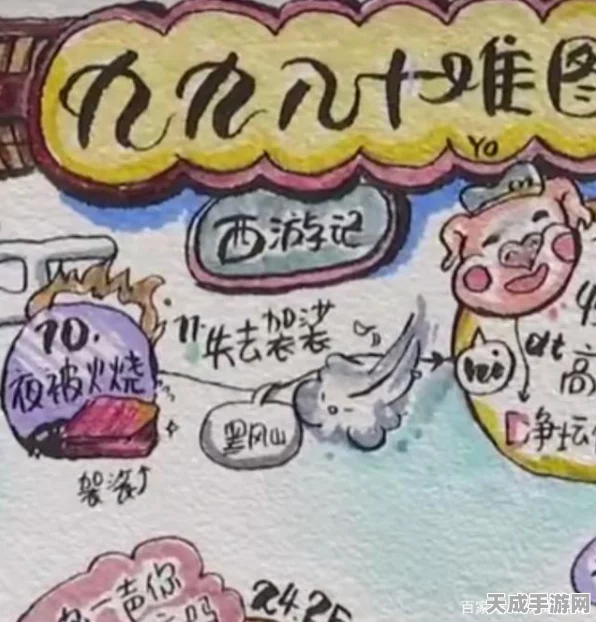 九九八十难图
YO
西游记
10.
夜被火烧
袈裟
11.
失去袈裟
黑风山
at
高
净坛
一声你
吗
24.25
百家
天成手游网